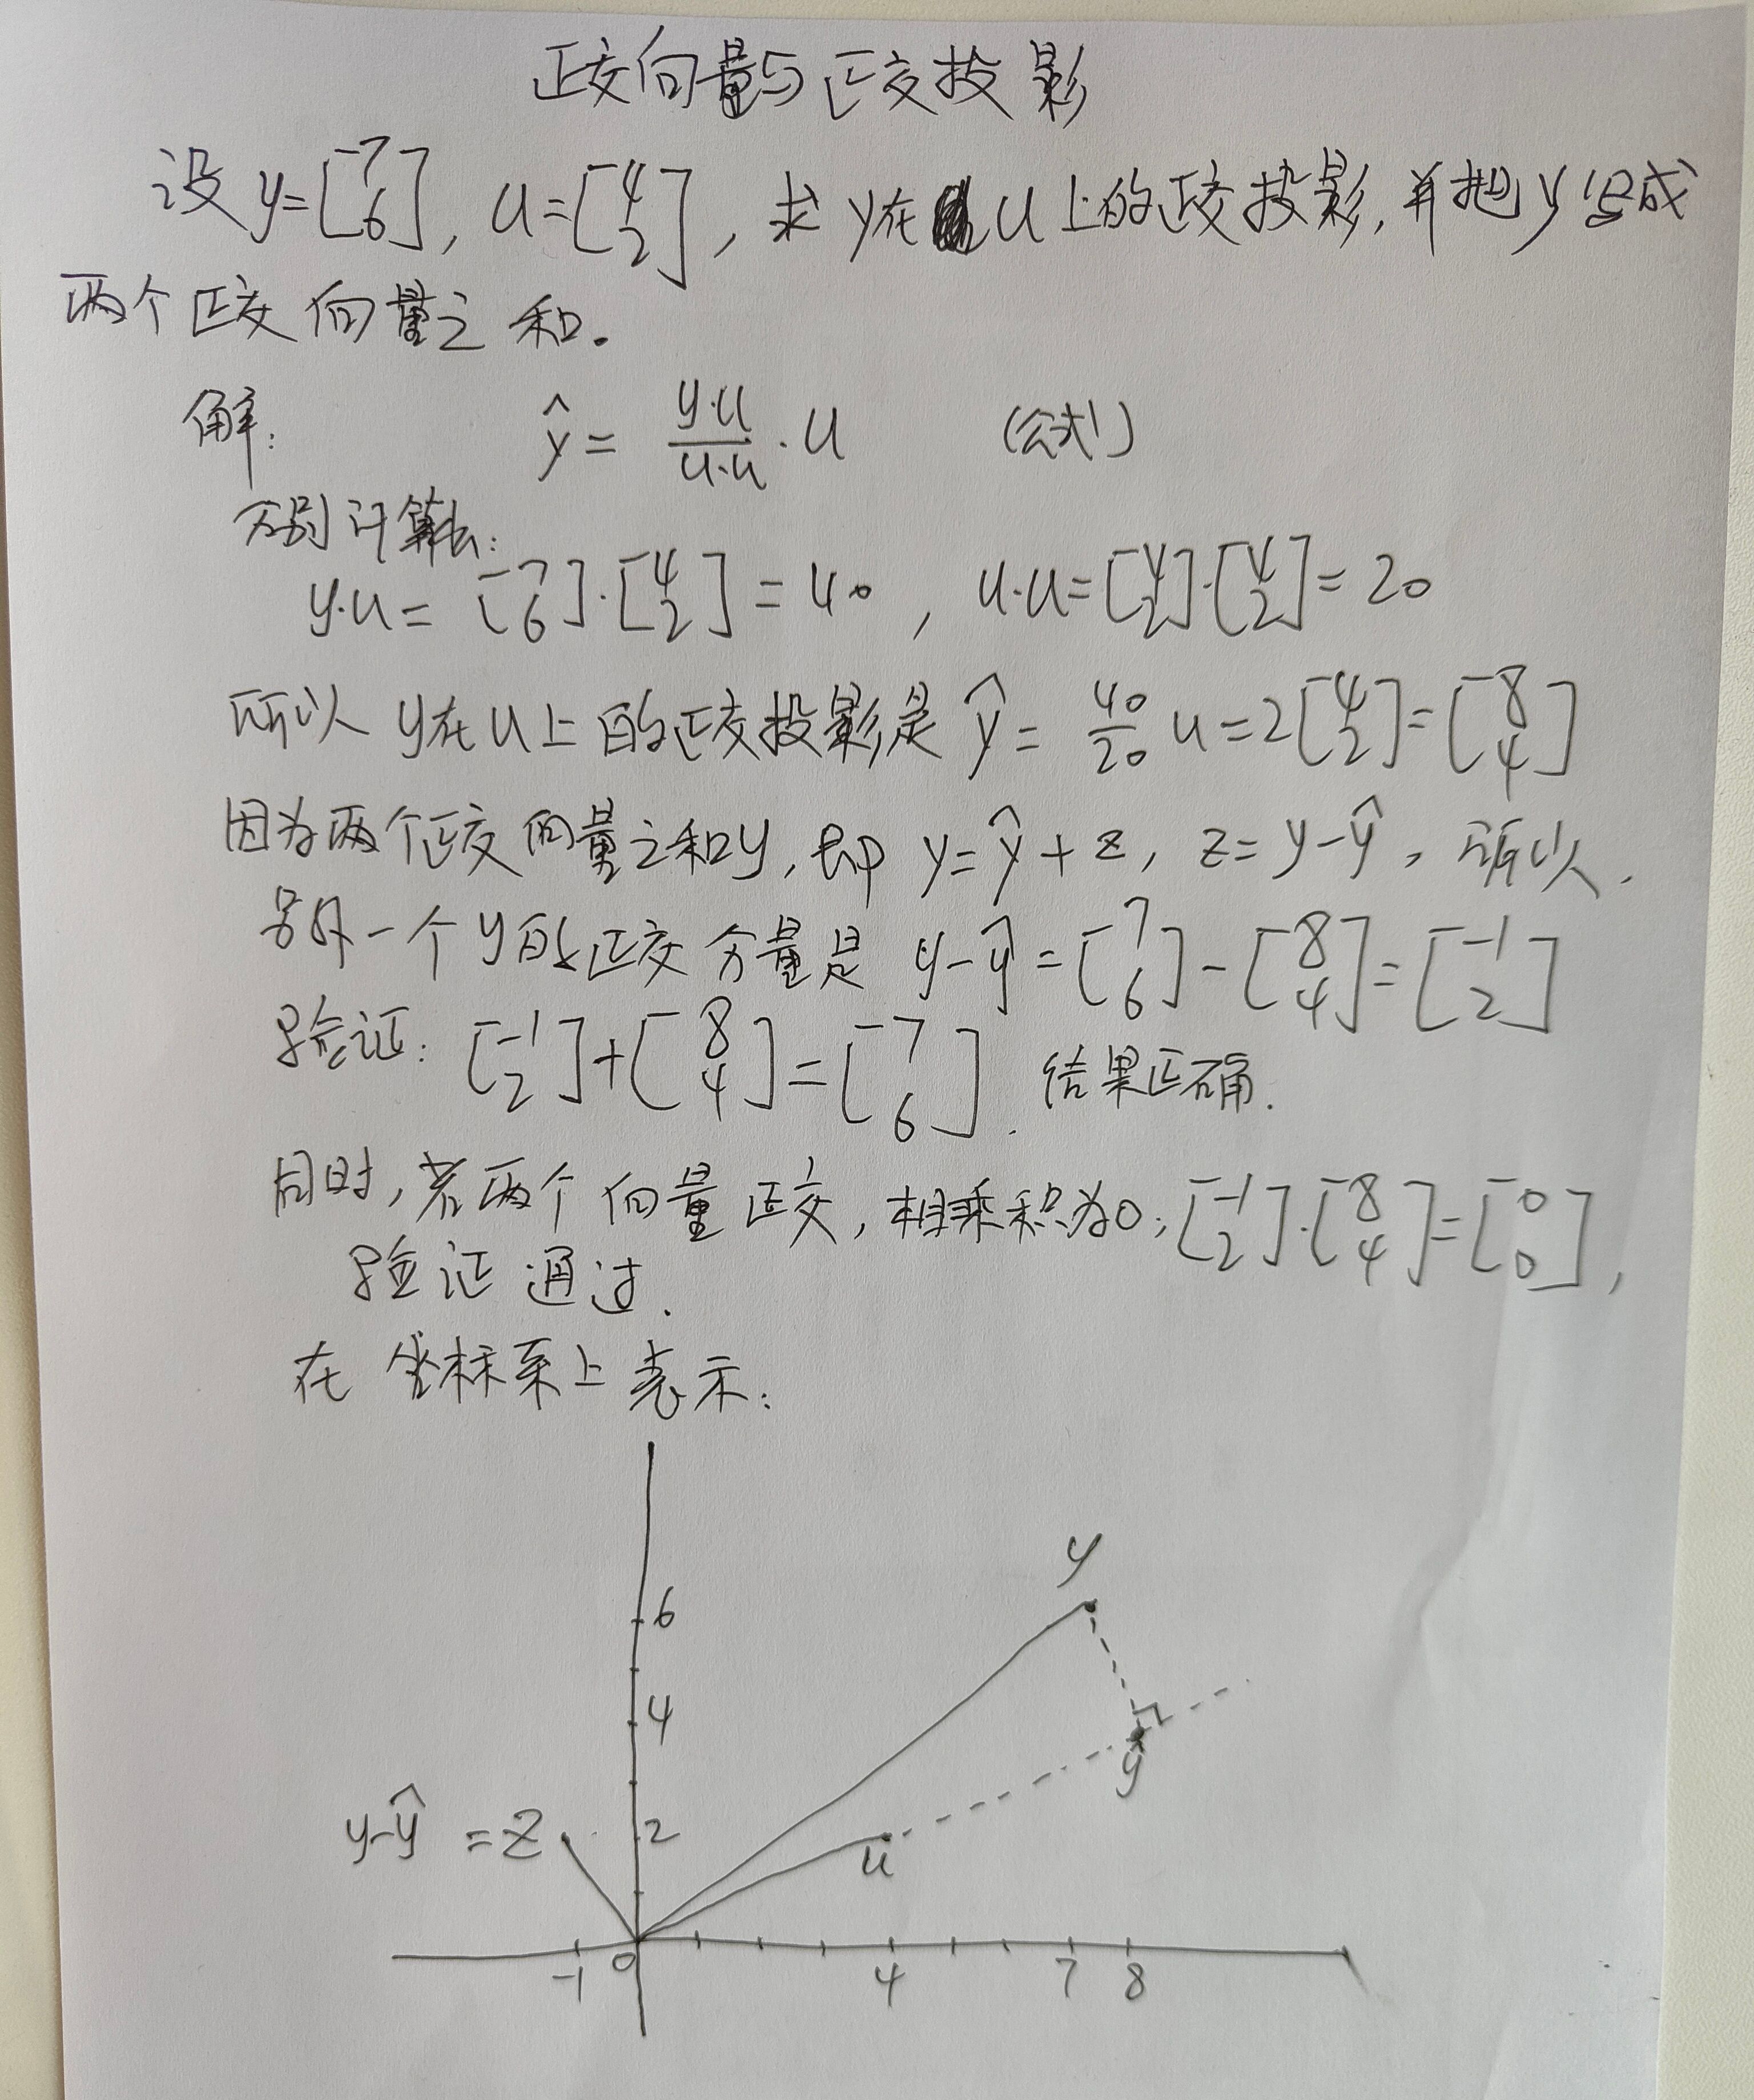 正交向量与正交投影
设 y=[7 6], u=[4 2], 求 y在u上的正交投影, 并把y写成
两个正交向量之和。
解: ŷ = (y·u)/(u·u) · u (公式)
分别计算出:
y·u = [7 6]·[4 2] = 40, u·u = [4 2]·[4 2] = 20
所以 y在u上的正交投影是 ŷ = 40/20 u = 2[4 2] = [8 4]
因为两个正交向量之和y, 即 y=ŷ+z, z=y-ŷ, 所以,
另外一个y的正交分量是 y-ŷ = [7 6] - [8 4] = [-1 2]
验证: [-1 2] + [8 4] = [7 6]. 结果正确.
同时, 若两个向量正交, 相乘积为0; [-1 2]·[8 4] = [0 0],
验证通过.
在坐标系上表示:
y
6
4
ŷ
y-ŷ = z
2
u
-1 0 4 7 8